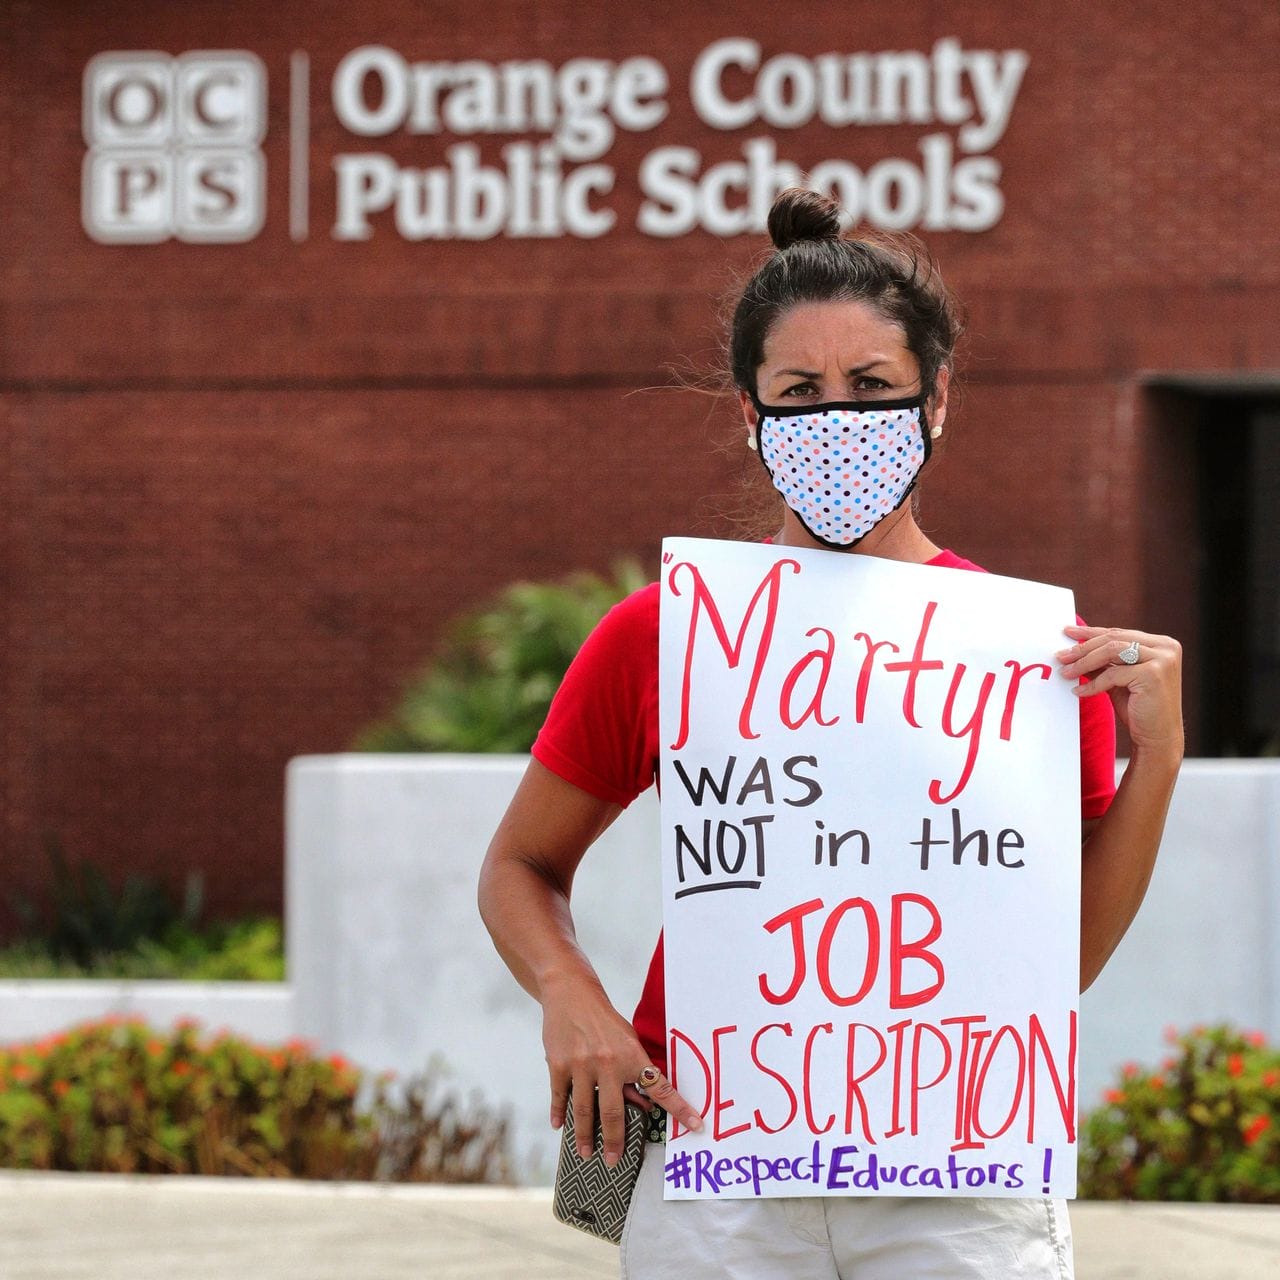 OC
PS
Orange County
Public Schools
"Martyr
WAS
NOT in the
JOB
DESCRIPTION
#RespectEducators!